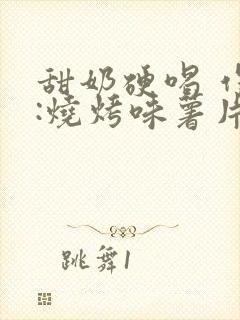 甜奶硬唱
:燒烤味薯片
跳舞1